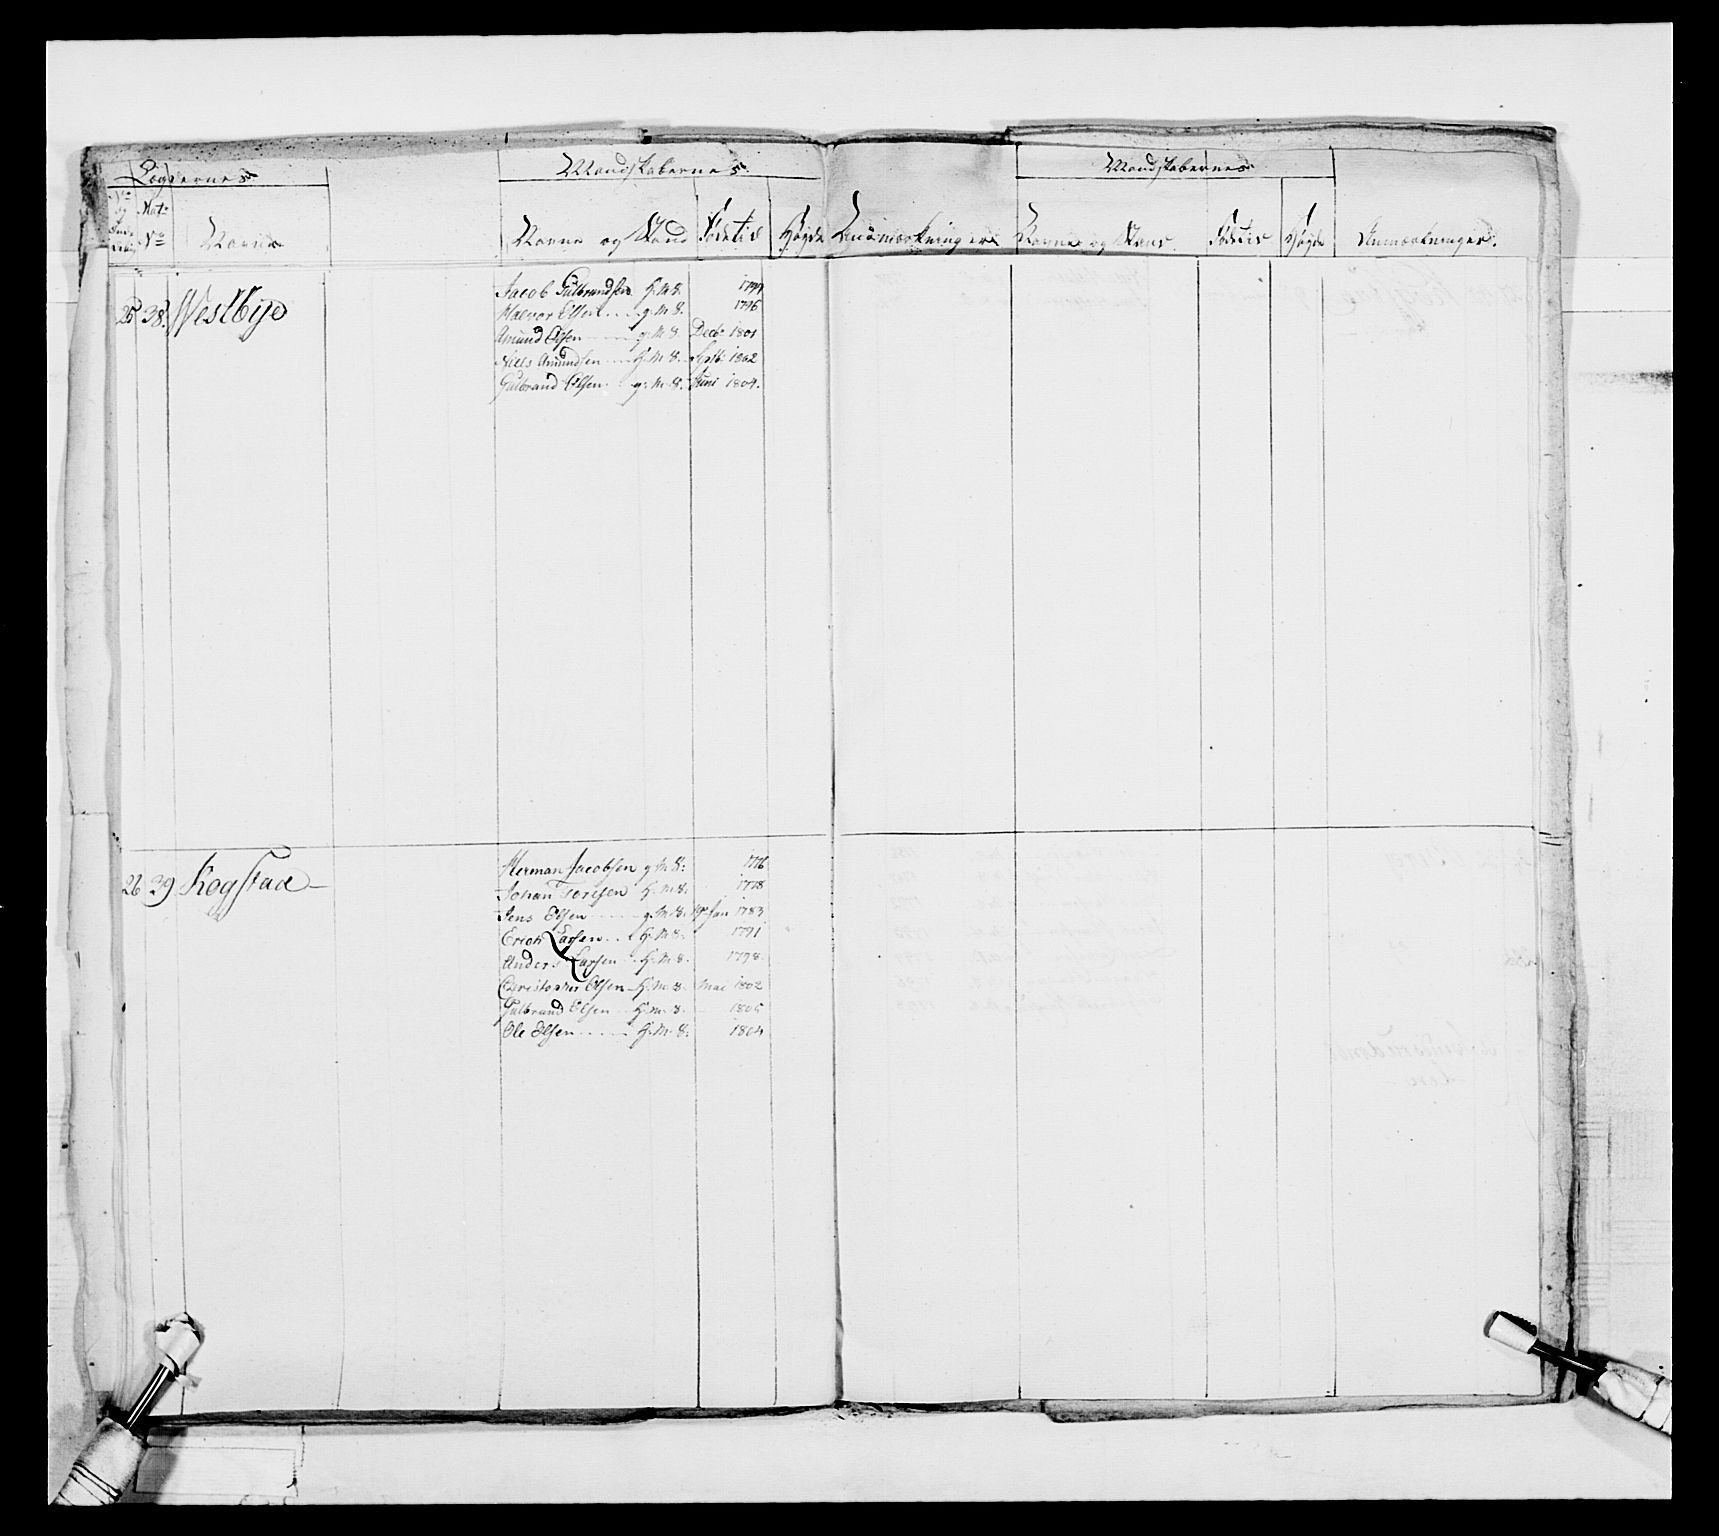 Lægdernes Mandskabernes Mandskabernes
No Mat: No Navne Navne og Stand Fødetid Høyde Anmærkninger Navne og Stand Fødetid Høyde Anmærkninger.
25 38. Westbye Jacob Gulbrandsen G: M: S: 1794
Halvor Ellen g: M: S: 1796
Amund Olsen g: M: S. Decbr 1801
Niels Amundsen G: M: S. Septb: 1802
Gulbrand Olsen g: M: S. Juni 1804.
26 39 Kogstad Herman Jacobsen g: M: S: 1776
Johan Torisen G: M: S: 1778
Jens Olsen g: M: S. Jan 1783
Erich Larsen G: M: S: 1791
Anders Larsen G: M: S. 1798.
Christopher Olsen G: M: S. Mai 1802
Gulbrand Olsen G: M: S. 1805
Ole Olsen G: M: S: 1804